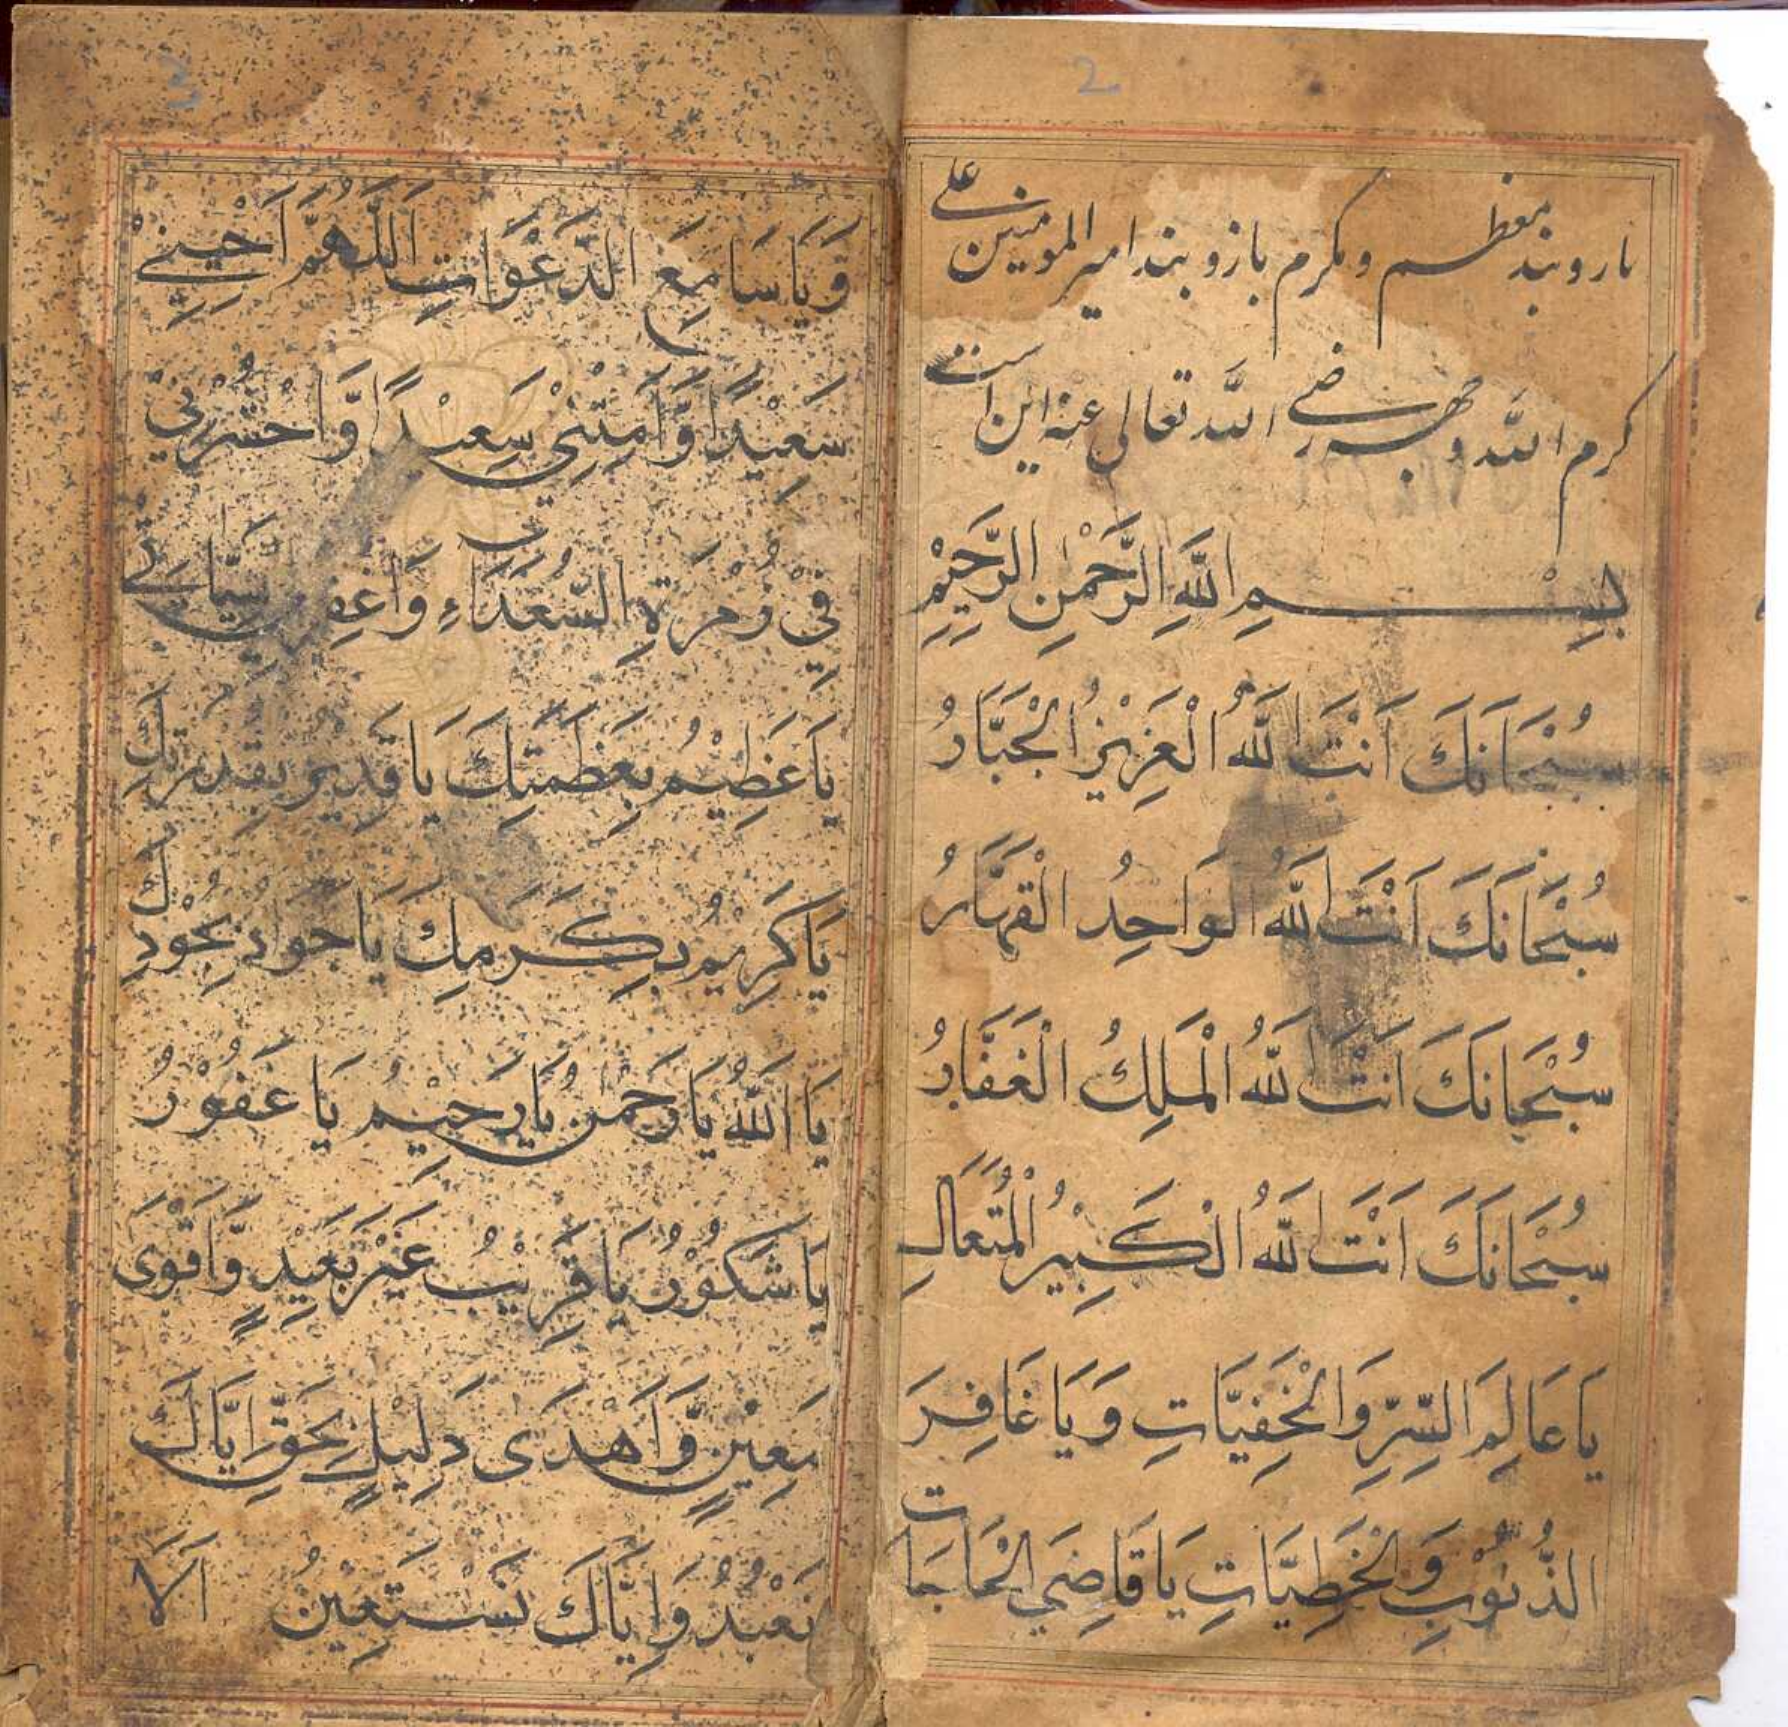 2
بازوبند معظم ومکرم بازوبند امیر المومنین علی
کرم الله وجهه رضی الله تعالی عنه این است
بِسْمِ اللهِ الرَّحْمٰنِ الرَّحِيْمِ
سُبْحَانَكَ اَنْتَ اللهُ الْعَزِيْزُ الْجَبَّارُ
سُبْحَانَكَ اَنْتَ اللهُ الْوَاحِدُ الْقَهَّارُ
سُبْحَانَكَ اَنْتَ اللهُ الْمَلِكُ الْغَفَّارُ
سُبْحَانَكَ اَنْتَ اللهُ الْكَبِيْرُ الْمُتَعَالِ
يَا عَالِمَ السِّرِّ وَالْخَفِيَّاتِ وَيَا غَافِرَ
الذُّنُوْبِ وَالْخَطِيَّاتِ يَا قَاضِيَ الْحَاجَاتِ
3
وَيَا سَامِعَ الدَّعَوَاتِ اَللّٰهُمَّ اَحْيِنِيْ
سَعِيْدًا وَّاَمِتْنِيْ سَعِيْدًا وَّاحْشُرْنِيْ
فِيْ زُمْرَةِ السُّعَدَاءِ وَاغْفِرْ سَيِّاٰتِيْ
يَا عَظِيْمُ بِعَظَمَتِكَ يَا قَدِيْرُ بِقُدْرَتِكَ
يَا كَرِيْمُ بِكَرَمِكَ يَا جَوَادُ بِجُوْدِكَ
يَا اَللهُ يَا رَحْمٰنُ يَا رَحِيْمُ يَا غَفُوْرُ
يَا شَكُوْرُ يَا قَرِيْبُ غَيْرَ بَعِيْدٍ وَّاَقْوَى
مَعِيْنٍ وَّاَهْدَى دَلِيْلٍ بِحَقِّ اِيَّاكَ
نَعْبُدُ وَاِيَّاكَ نَسْتَعِيْنُ اَلَا